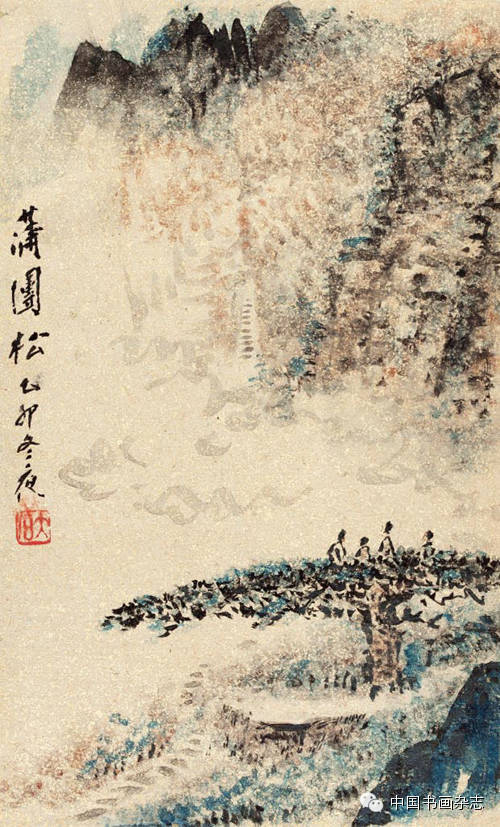 蒲團松乙卯冬夜
中国书画杂志